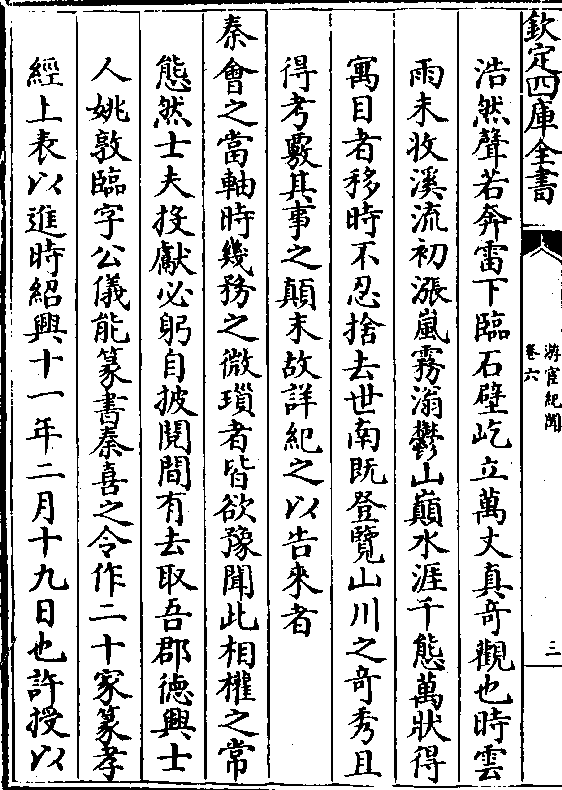 欽定四庫全書
游宦紀聞
卷六
三
浩然聲若奔雷下臨石壁屹立萬丈真奇觀也時雲
雨未收溪流初漲嵐霧滃鬱山巔水涯千態萬狀得
寓目者移時不忍捨去世南既登覽山川之奇秀且
得考覈其事之顛末故詳紀之以告來者
秦會之當軸時幾務之微瑣者皆欲豫聞此相權之常
態然士夫投獻必躬自披閱間有去取吾郡德興士
人姚敦臨字公儀能篆書秦喜之令作二十家篆孝
經上表以進時紹興十一年二月十九日也許授以